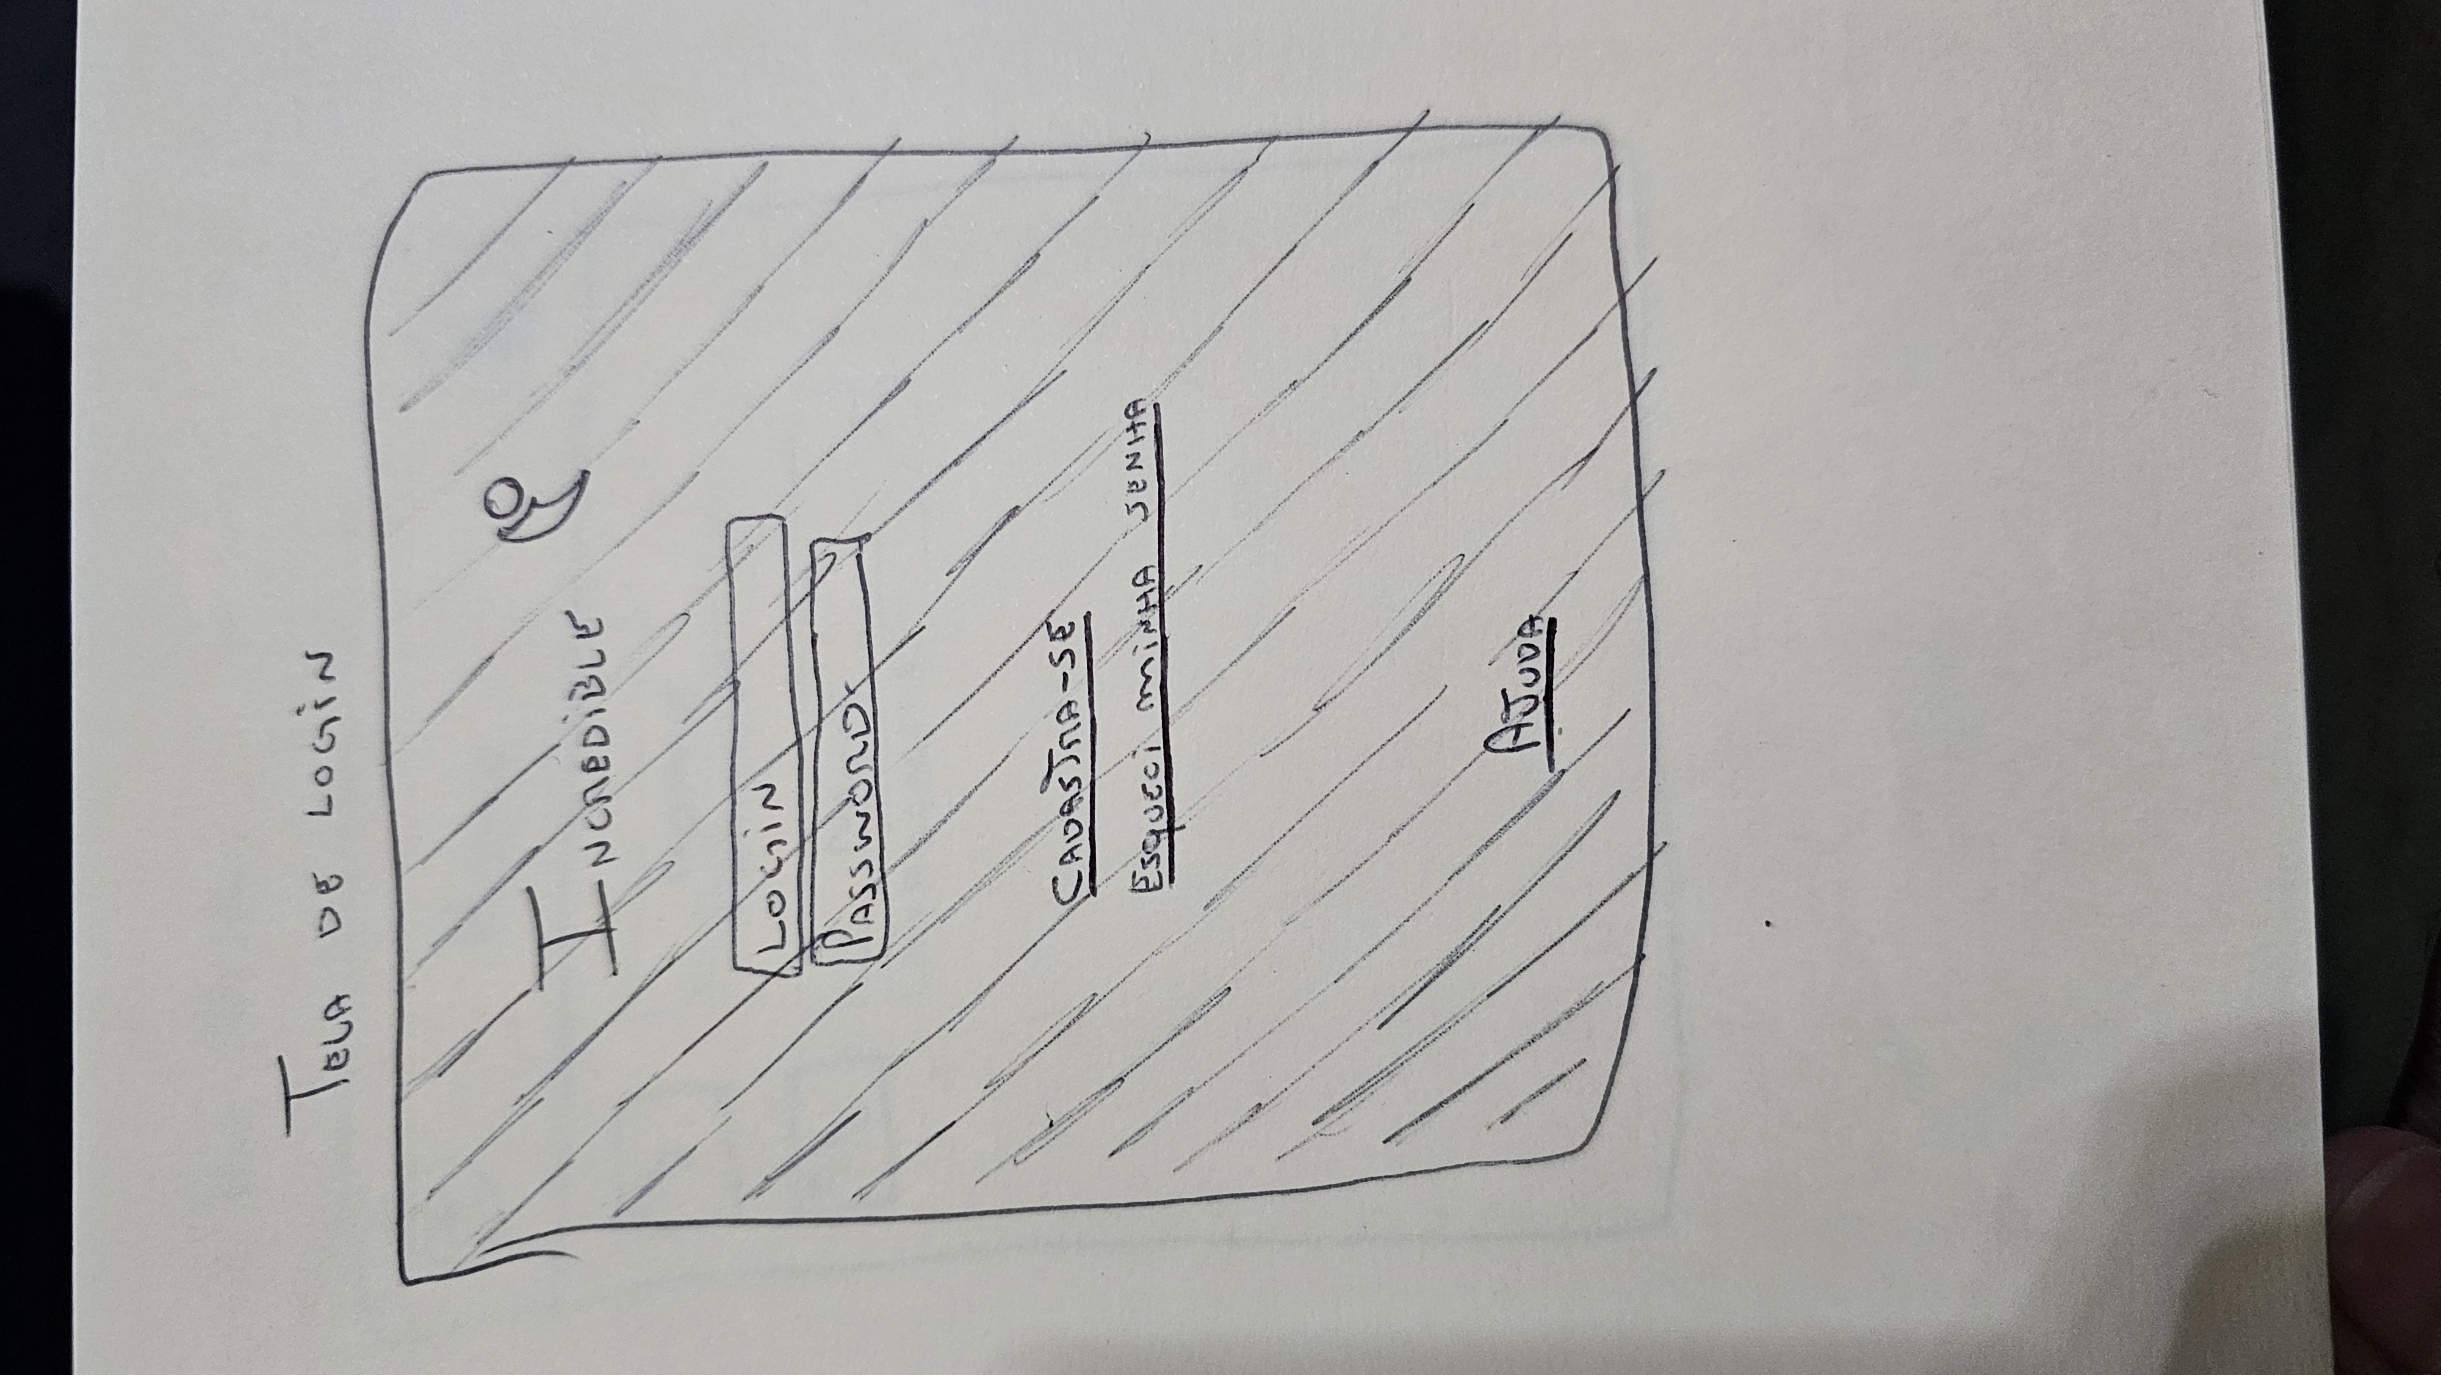 TELA DE LOGIN
INCREDIBLE
LOGIN
PASSWORD
CADASTRA-SE
ESQUECI MINHA SENHA
AJUDA